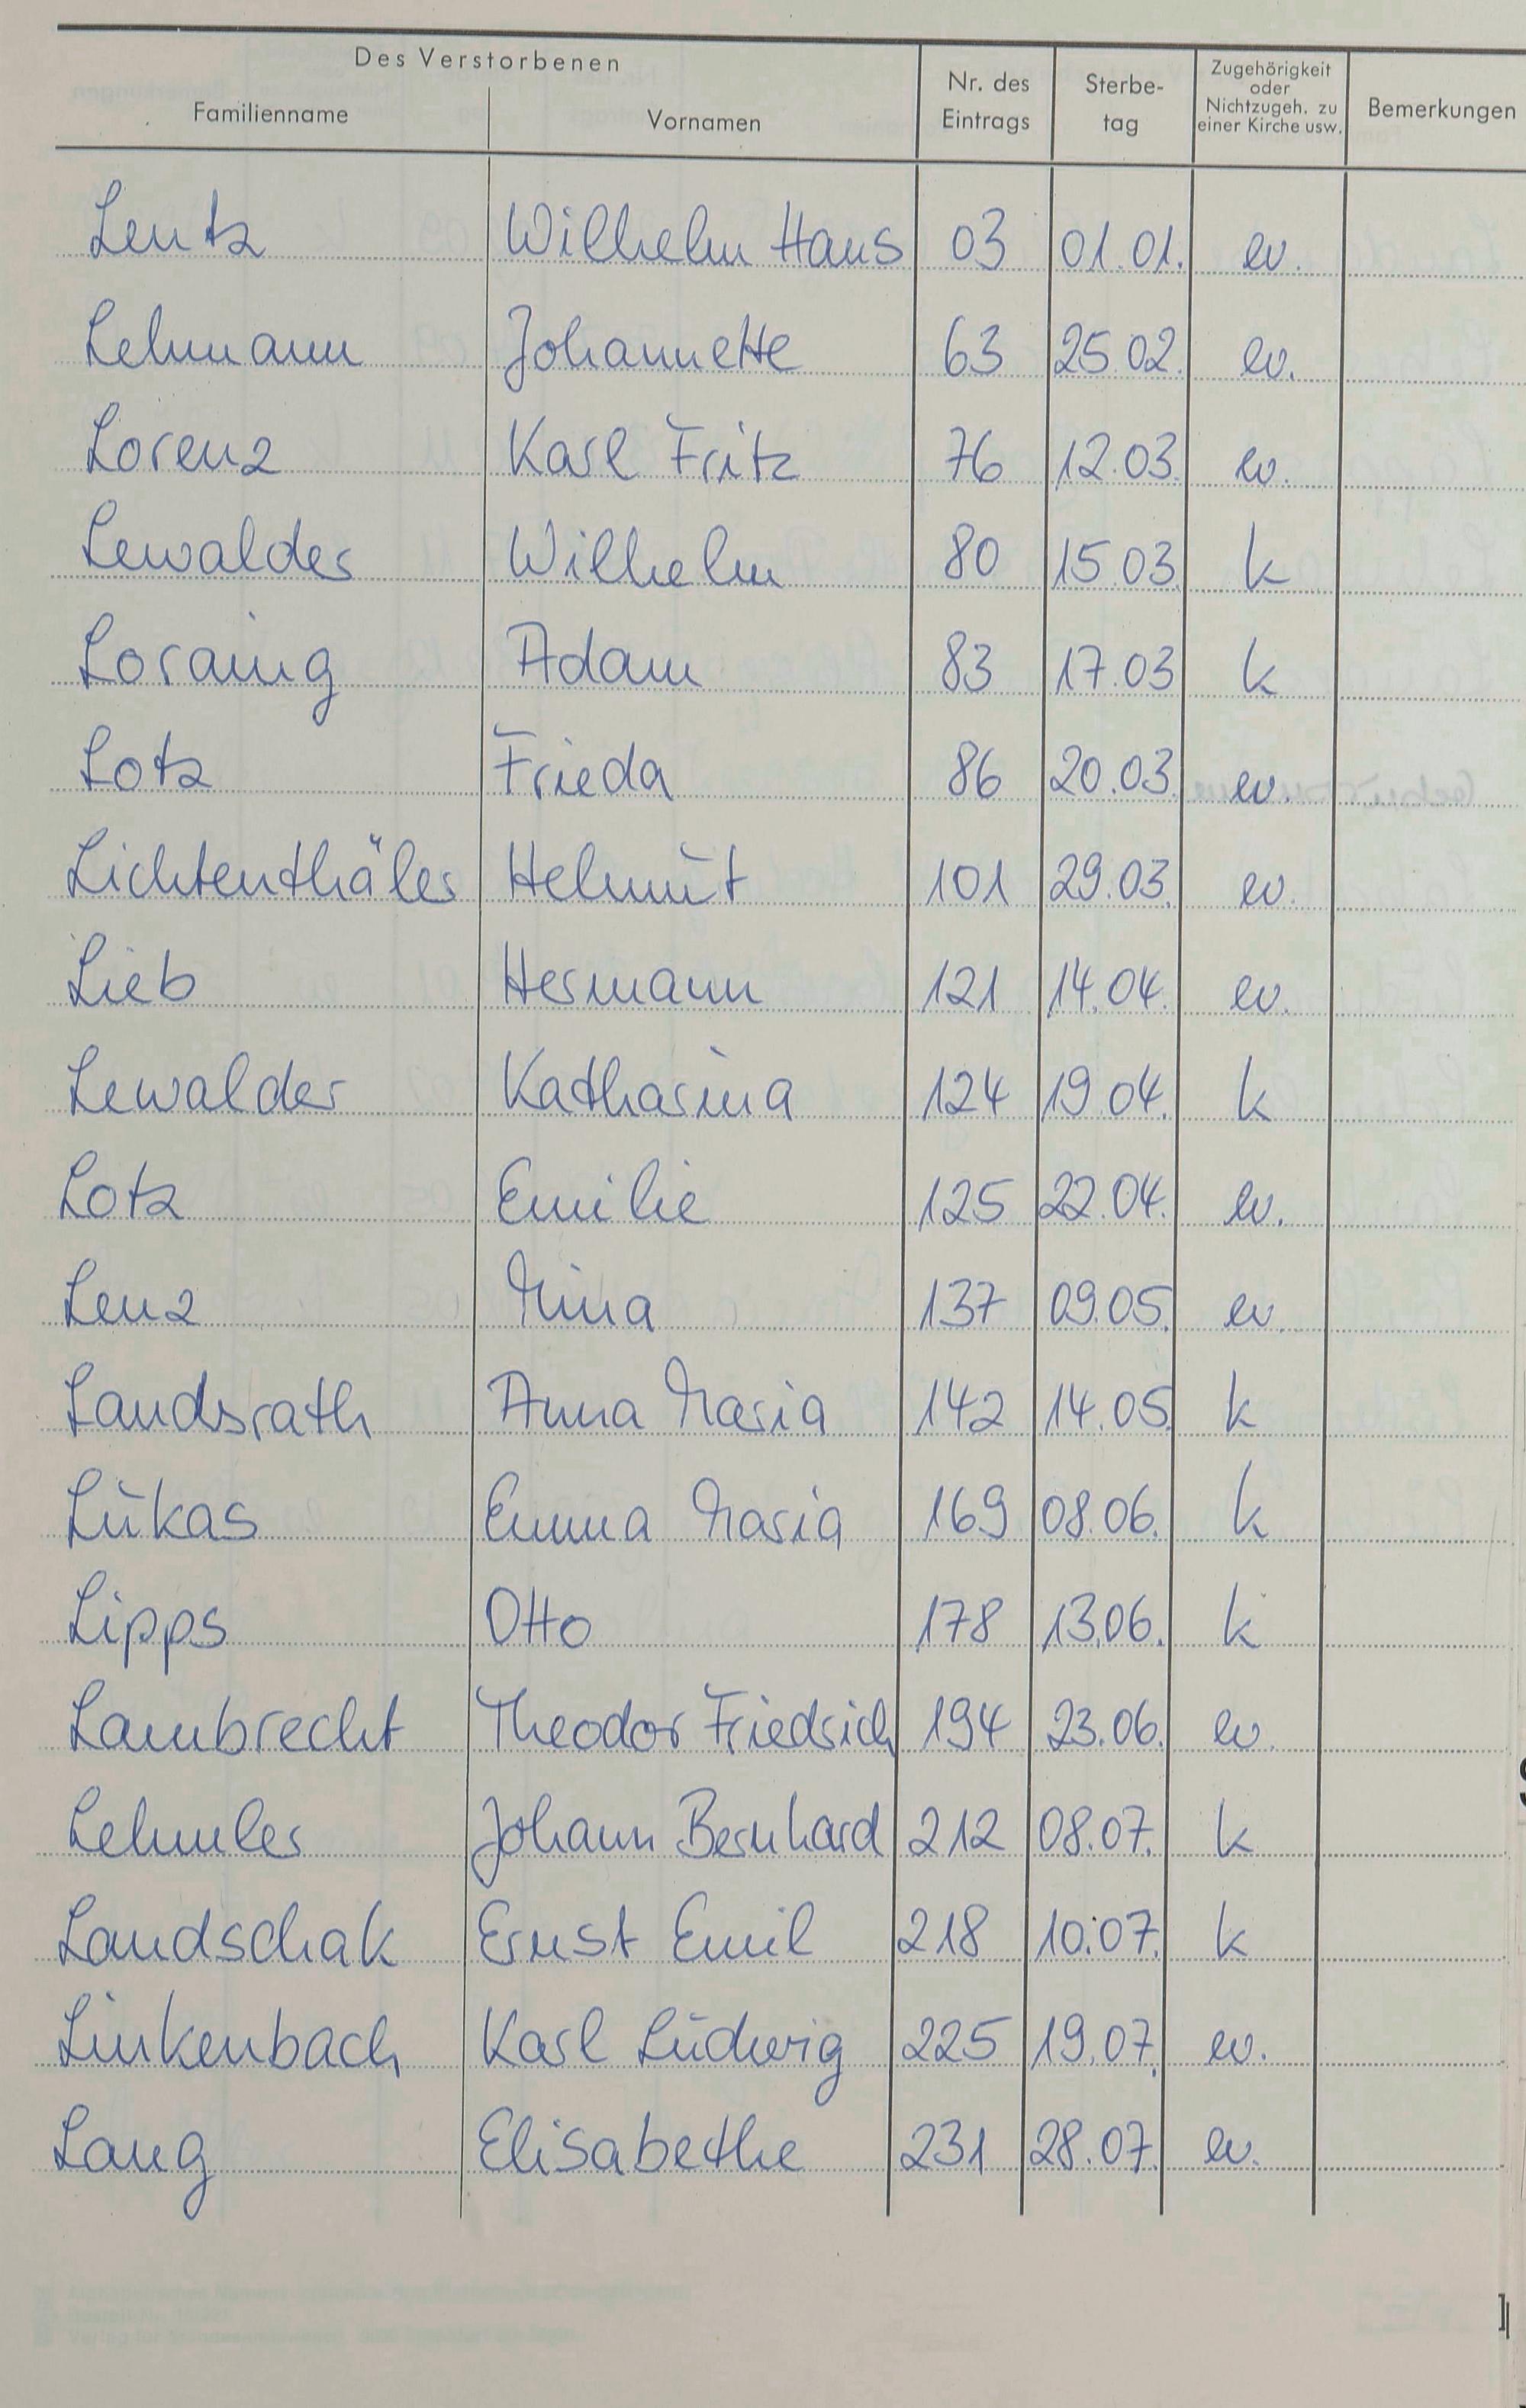 Des Verstorbenen
Familienname Vornamen Nr. des Eintrags Sterbe-tag Zugehörigkeit oder Nichtzugeh. zu einer Kirche usw. Bemerkungen
Lentz Wilhelm Hans 03 01.01. ev.
Lehmann Johannette 63 25.02. ev.
Lorenz Karl Fritz 76 12.03. ev.
Lewalder Wilhelm 80 15.03. k
Loraing Adam 83 17.03 k
Lotz Frieda 86 20.03. ev.
Lichtenthäler Helmut 101 29.03. ev.
Lieb Hermann 121 14.04. ev.
Lewalder Katharina 124 19.04. k
Lotz Emilie 125 22.04. ev.
Lenz Mina 137 09.05. ev.
Landsrath Anna Maria 142 14.05. k
Lukas Emma Maria 169 08.06. k
Lipps Otto 178 13.06. k
Lambrecht Theodor Friedrich 194 23.06. ev.
Lehmler Johann Bernhard 212 08.07. k
Landschak Ernst Emil 218 10.07. k
Linkenbach Karl Ludwig 225 19.07. ev.
Lang Elisabethe 231 28.07. ev.